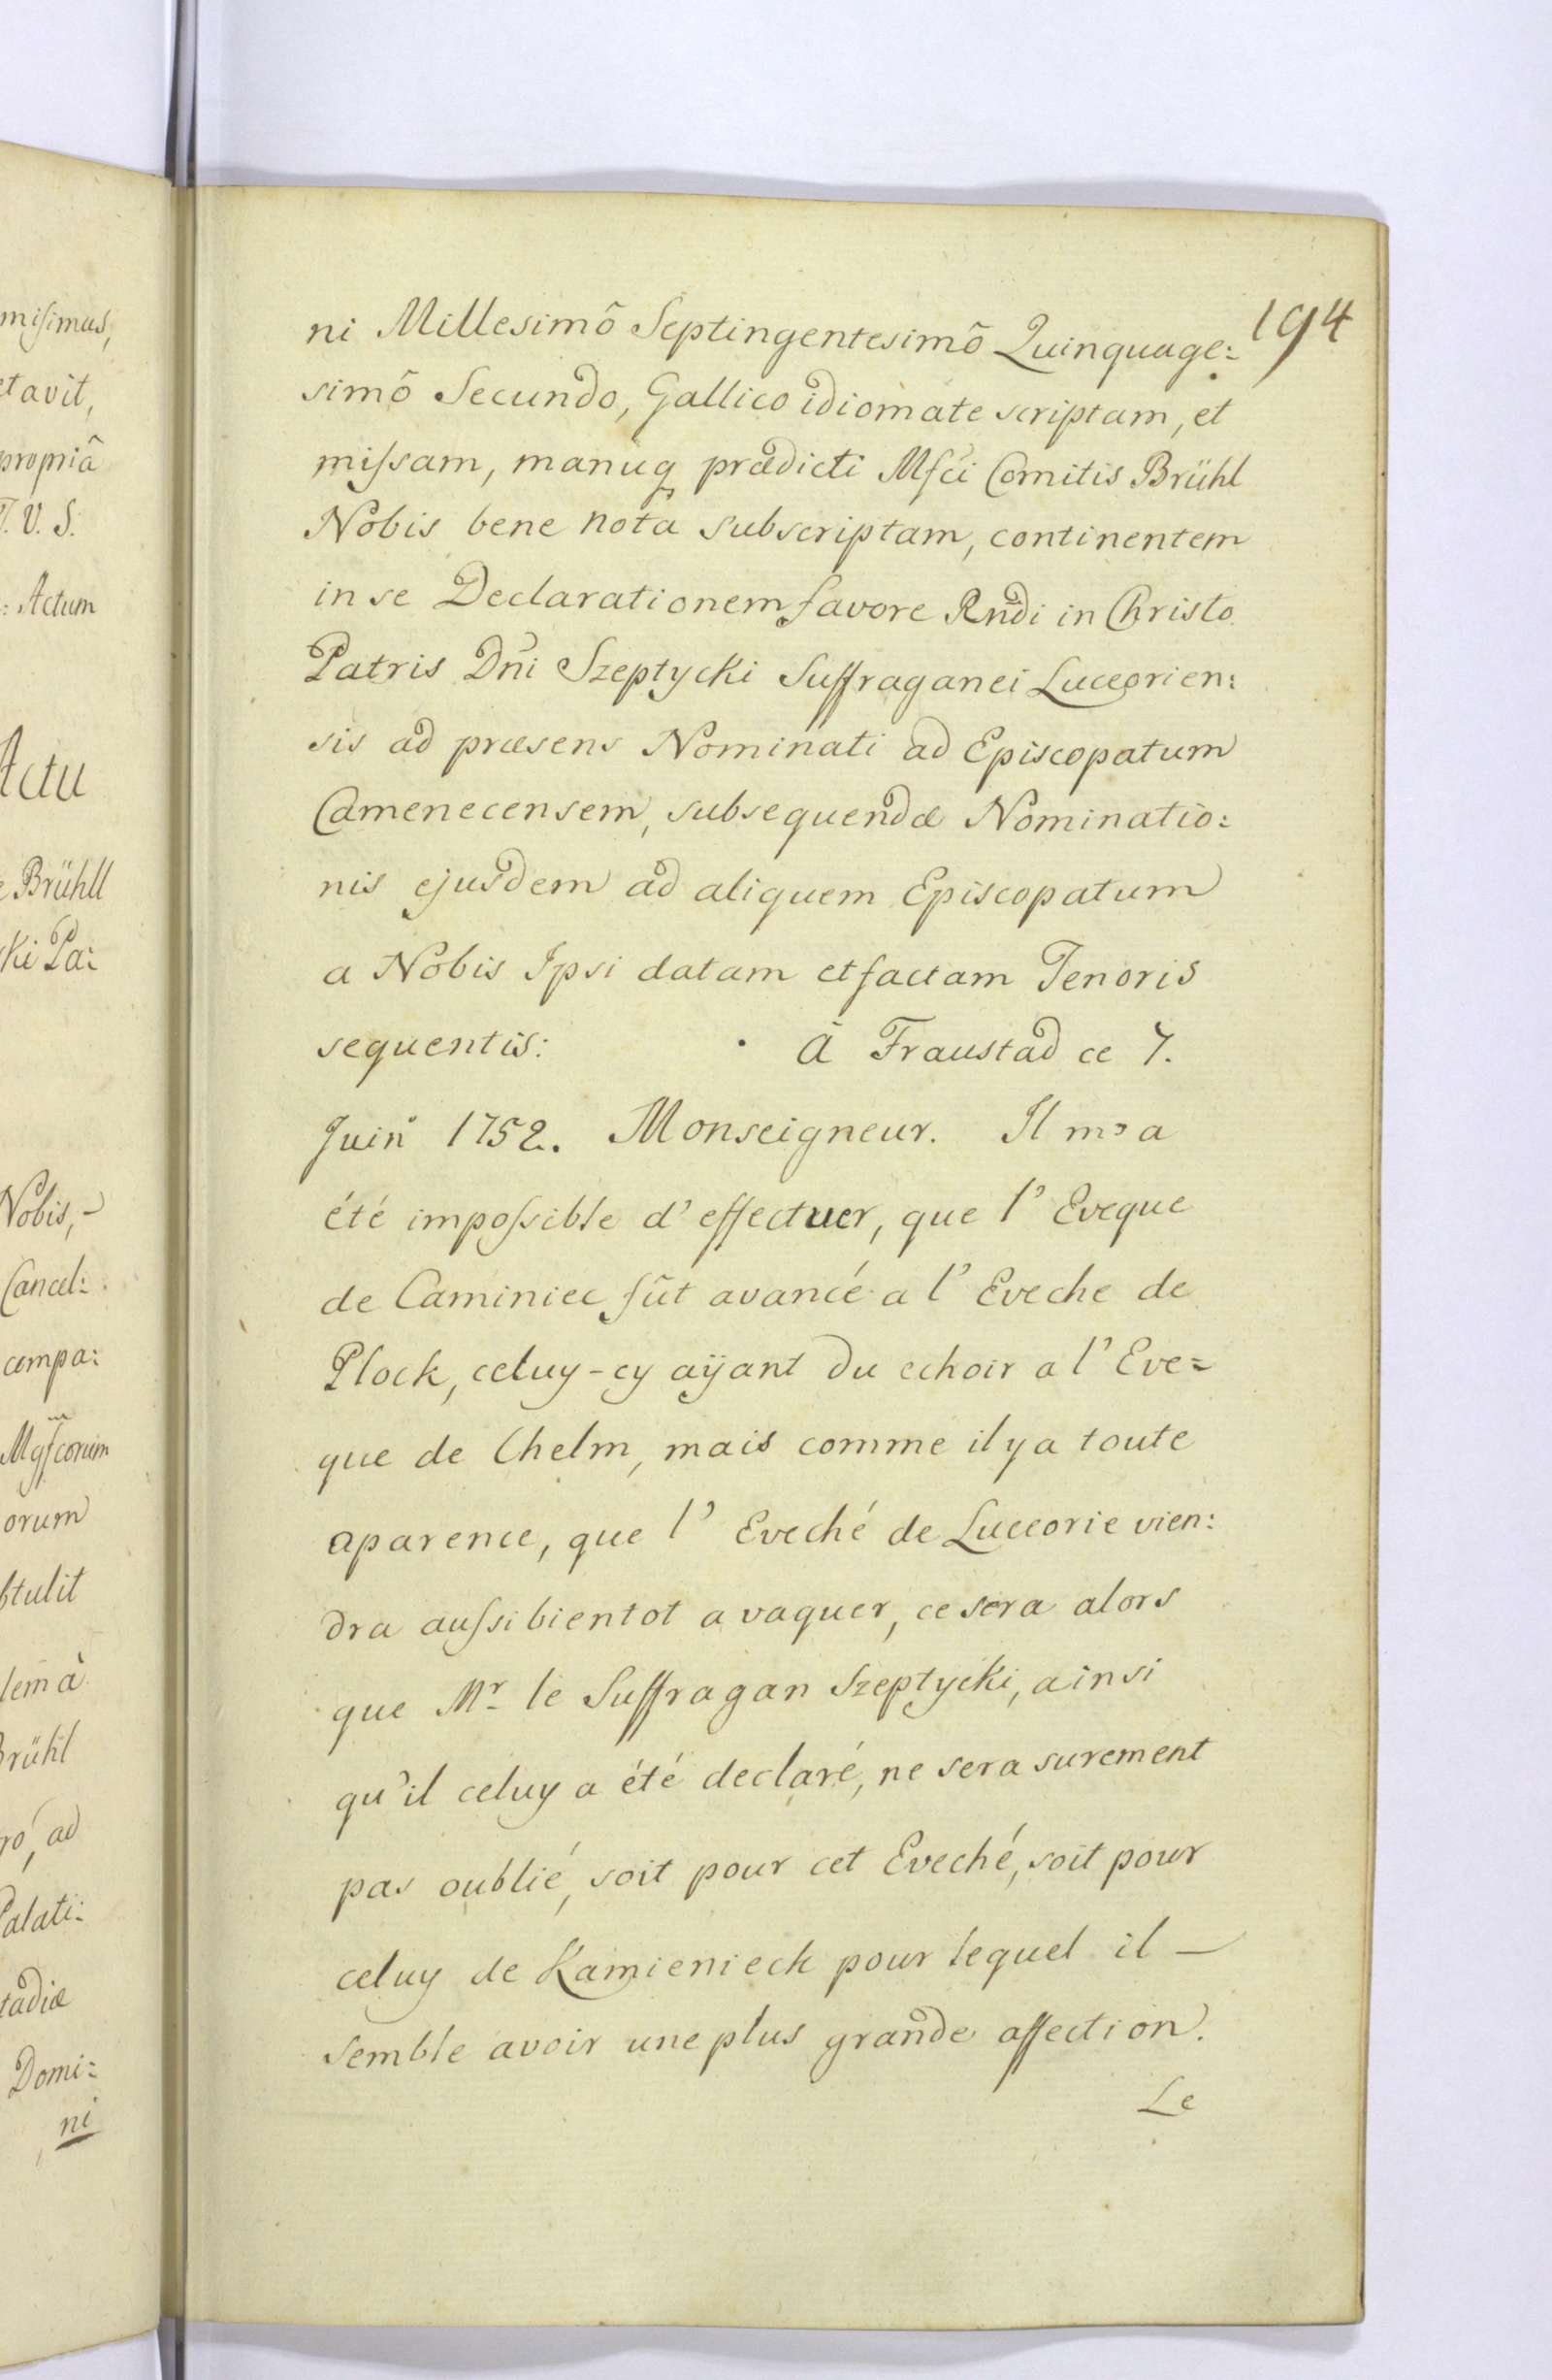 misimus,
etavit,
propriâ
T. V. S.
: Actum
Actu
e Brühll
ki Pa:
Nobis, -
Cancel:
compa:
orum
btulit
lem à
Brühl
ro, ad
Palati:
tadiæ
Domi:
ni
194
ni Millesimô Septingentesimô Quinquage:
simô Secundo, Gallico idiomate scriptam, et
missam, manuq prædicti Mfci Comitis Brühl
Nobis bene nota subscriptam, continentem
in se Declarationem favore Rndi in Christo
Patris Dni Szeptycki Suffraganei Luceorien:
sis ad præsens Nominati ad Episcopatum
Camenecensem, subsequendæ Nominatio:
nis ejusdem ad aliquem Episcopatum
a Nobis Ipsi datam et factam Tenoris
sequentis: à Fraustad ce 7.
Juin 1752. Monseigneur. Il m'a
été impossible d'effectuer, que l'Eveque
de Caminiec fût avancé a l'Eveche de
Plock, celuy-cy aÿant du echoir a l'Eve=
que de Chelm, mais comme il y a toute
aparence, que l'Eveché de Luceorie vien:
dra aussi bientot a vaquer, ce sera alors
que Mr le Suffragan Szeptycki, ainsi
qu'il celuy a été declaré, ne sera surement
pas oublié, soit pour cet Eveché, soit pour
celuy de Kamienieck pour lequel il —
semble avoir une plus grande affection.
Le